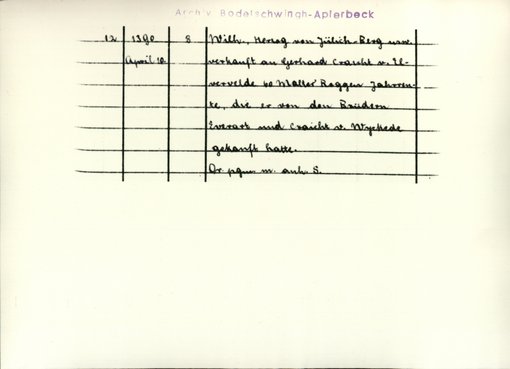 Archiv Bodelschwingh-Aplerbeck
12 1390 8 Wilh., Herzog von Jülich-Berg usw.
April 10. verkauft an Gerhard Craicht v. El-
vervelde 40 Malter Roggen Jahrren-
te, die er von den Brüdern
Everart und Craicht v. Wyckede
gekauft hatte.
Or. pgm. m. anh. S.